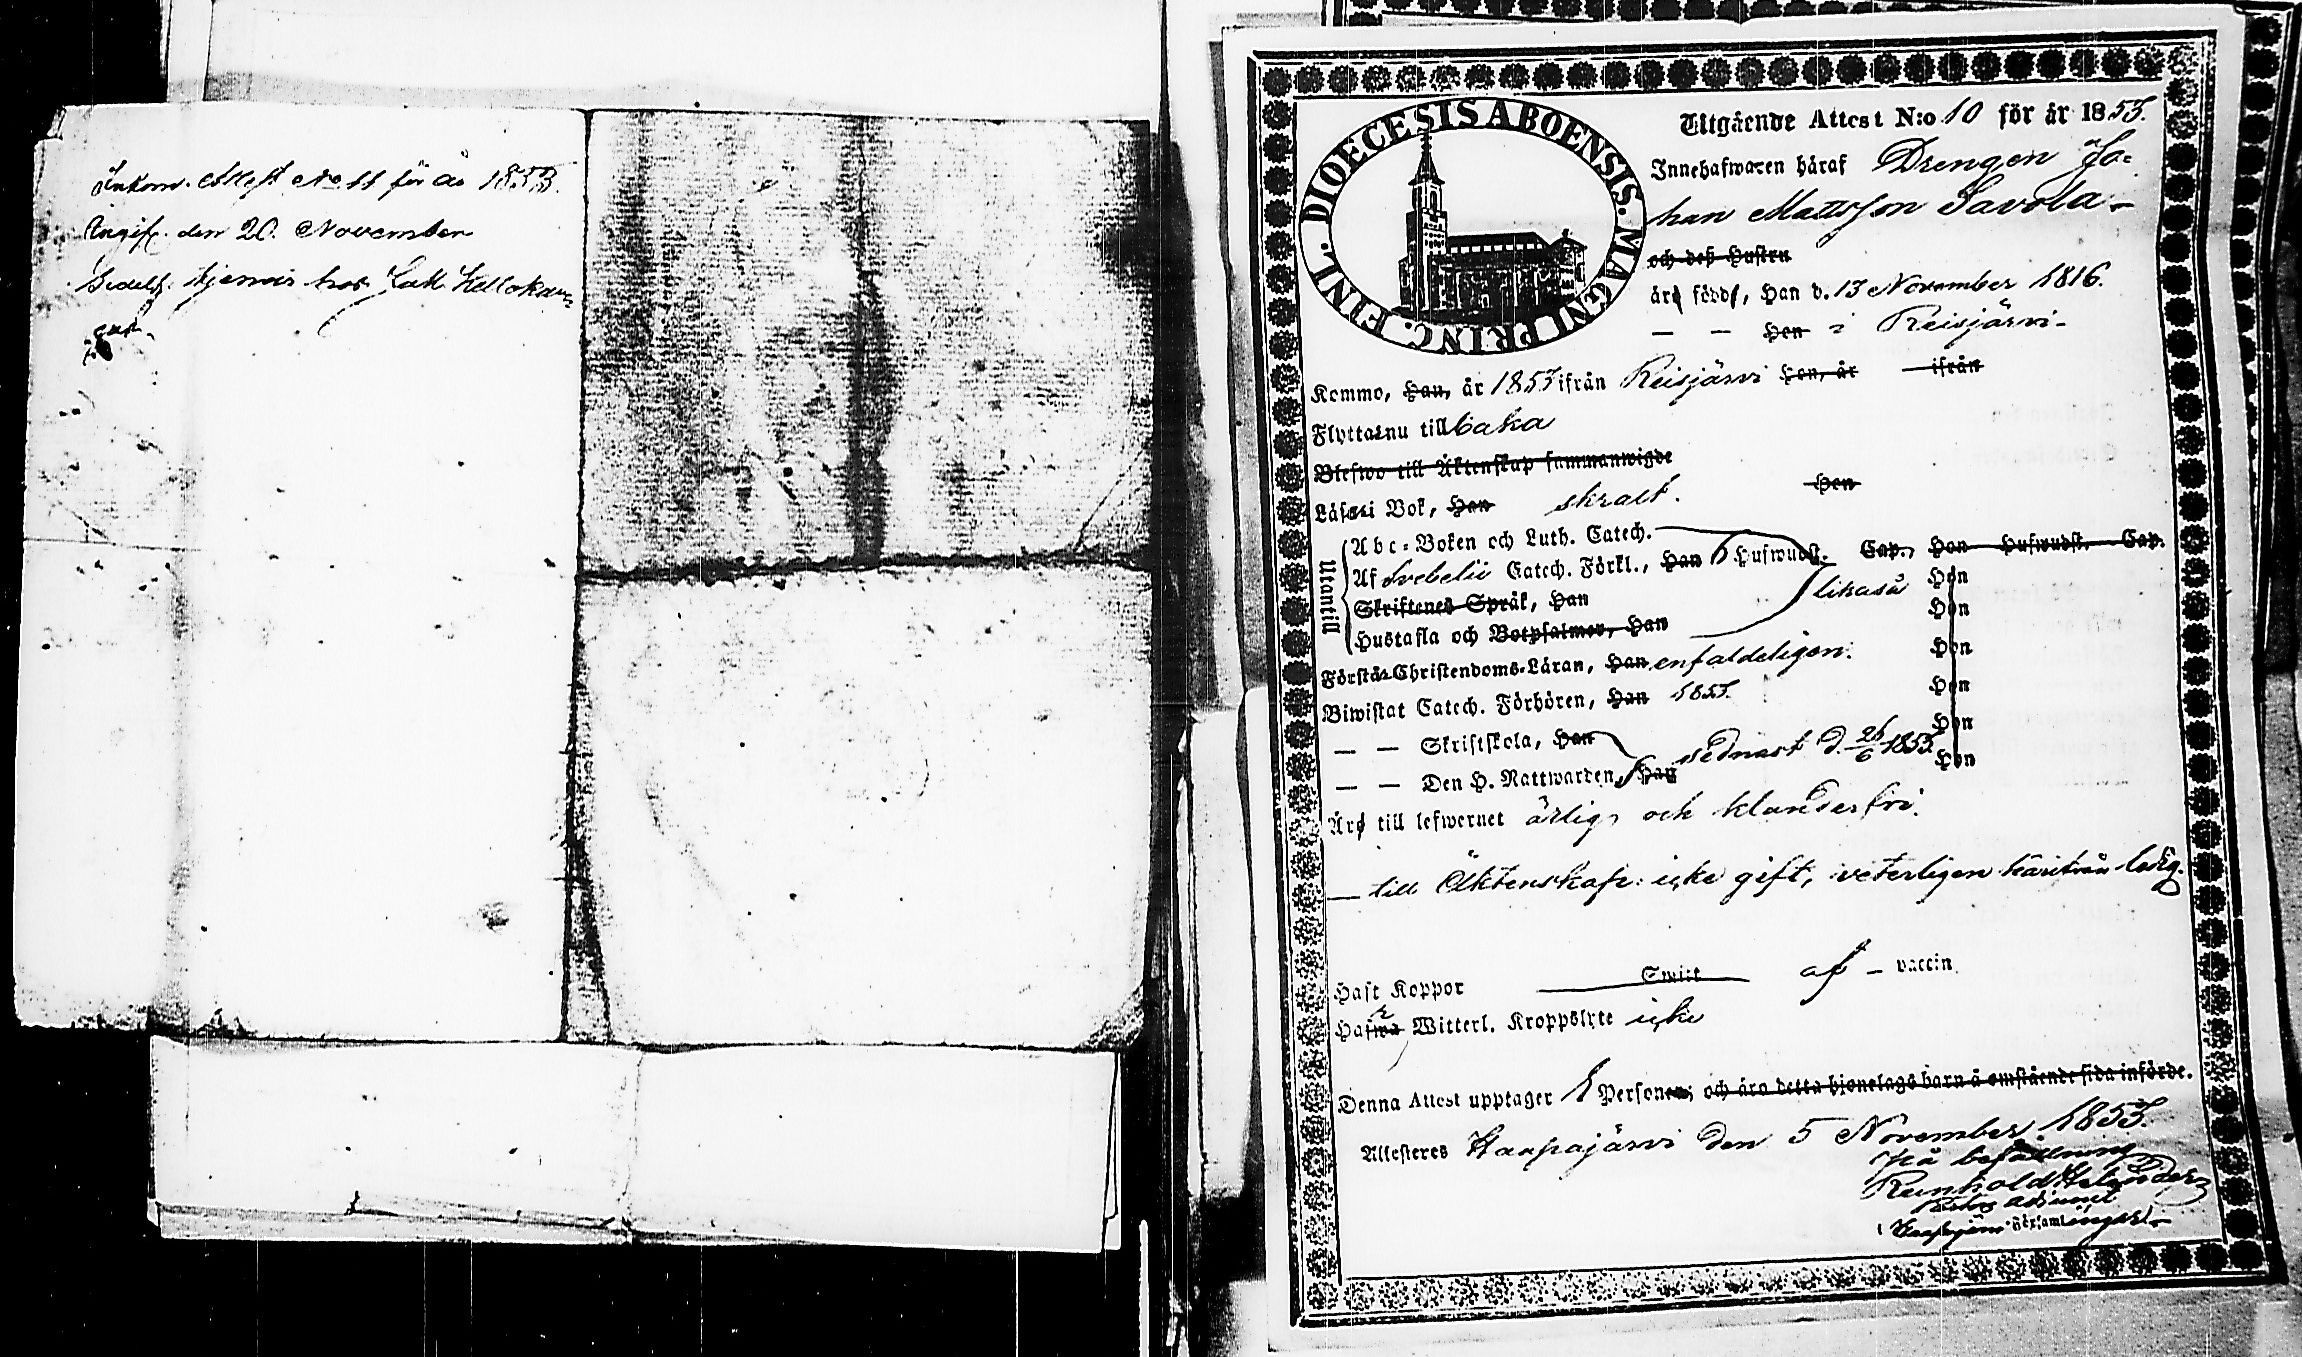 Inkom. Attest No 11 för år 1853.
Angifv. den 20. November
tjenar hos
DIOECESIS ABOENSIS. MAGNI PRINC. FINL.
Utgående Attest N:o 10 för år 1853.
Innehafwaren häraf Drengen Jo=
han Mattsson Savola -
och deß Hustru
äro födde, Han d. 13 November 1816.
— — Hon i Reisjärvi -
Kommo, Han, år 1853 ifrån Reisjärvi Hon, år — ifrån
Flytta nu till baka
Blefwo till Äktenskap sammanwigde
Läsa i Bok, Han skralt. Hon
Utantill
Abc-Boken och Luth. Catech.
Af Svebelii Catech. Förkl., Han 6 Hufwudst. Cap., Hon Hufwudst. Cap.
Skriftenes Språk, Han likaså Hon
Hustafla och Botpsalmer, Han Hon
Förstå Christendoms-Läran, Han enfaldeligen. Hon
Biwistat Catech. Förhören, Han 1853. Hon
— — Skriftskola, Han Hon
— — Den H. Nattwarden, Han sednast d. 26/6 1853. Hon
Äro till lefwernet ärlig och klanderfri.
— till Äktenskap: icke gift, veterligen häritrån ledig.
Haft Koppor Swire af - vaccin.
Hafwa Witterl. Kroppslyte icke
Denna Attest upptager 1 Personer; och äro detta hjonelags barn å omstående sida införde.
Attesteres Haapajärvi den 5 November 1853.
På befallning
Reinhold Helander
adjunct
i Haapajärvi Församlingar -